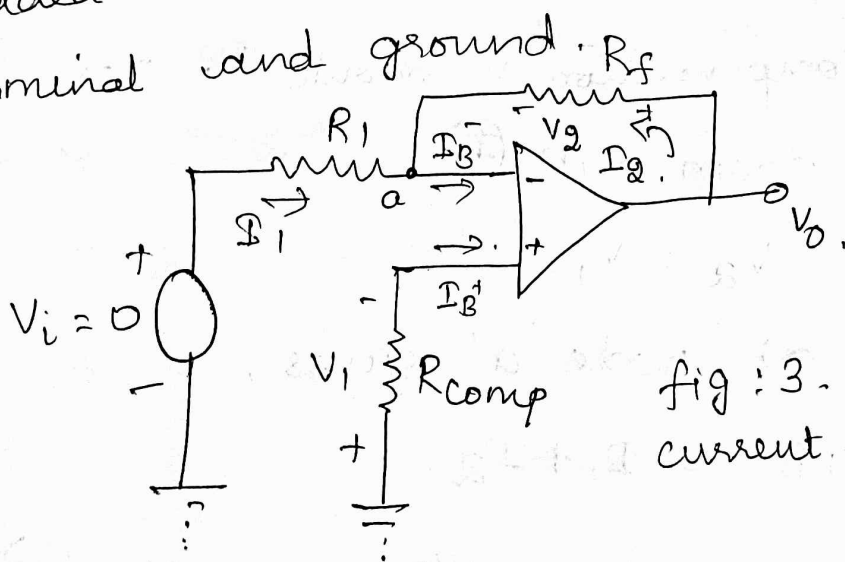 minal and ground.
Rf
R1
IB-
- V2 +
I2
a
I1
-
+
V0
+
Vi = 0
-
IB+
-
V1
Rcomp
+
fig : 3.
current.